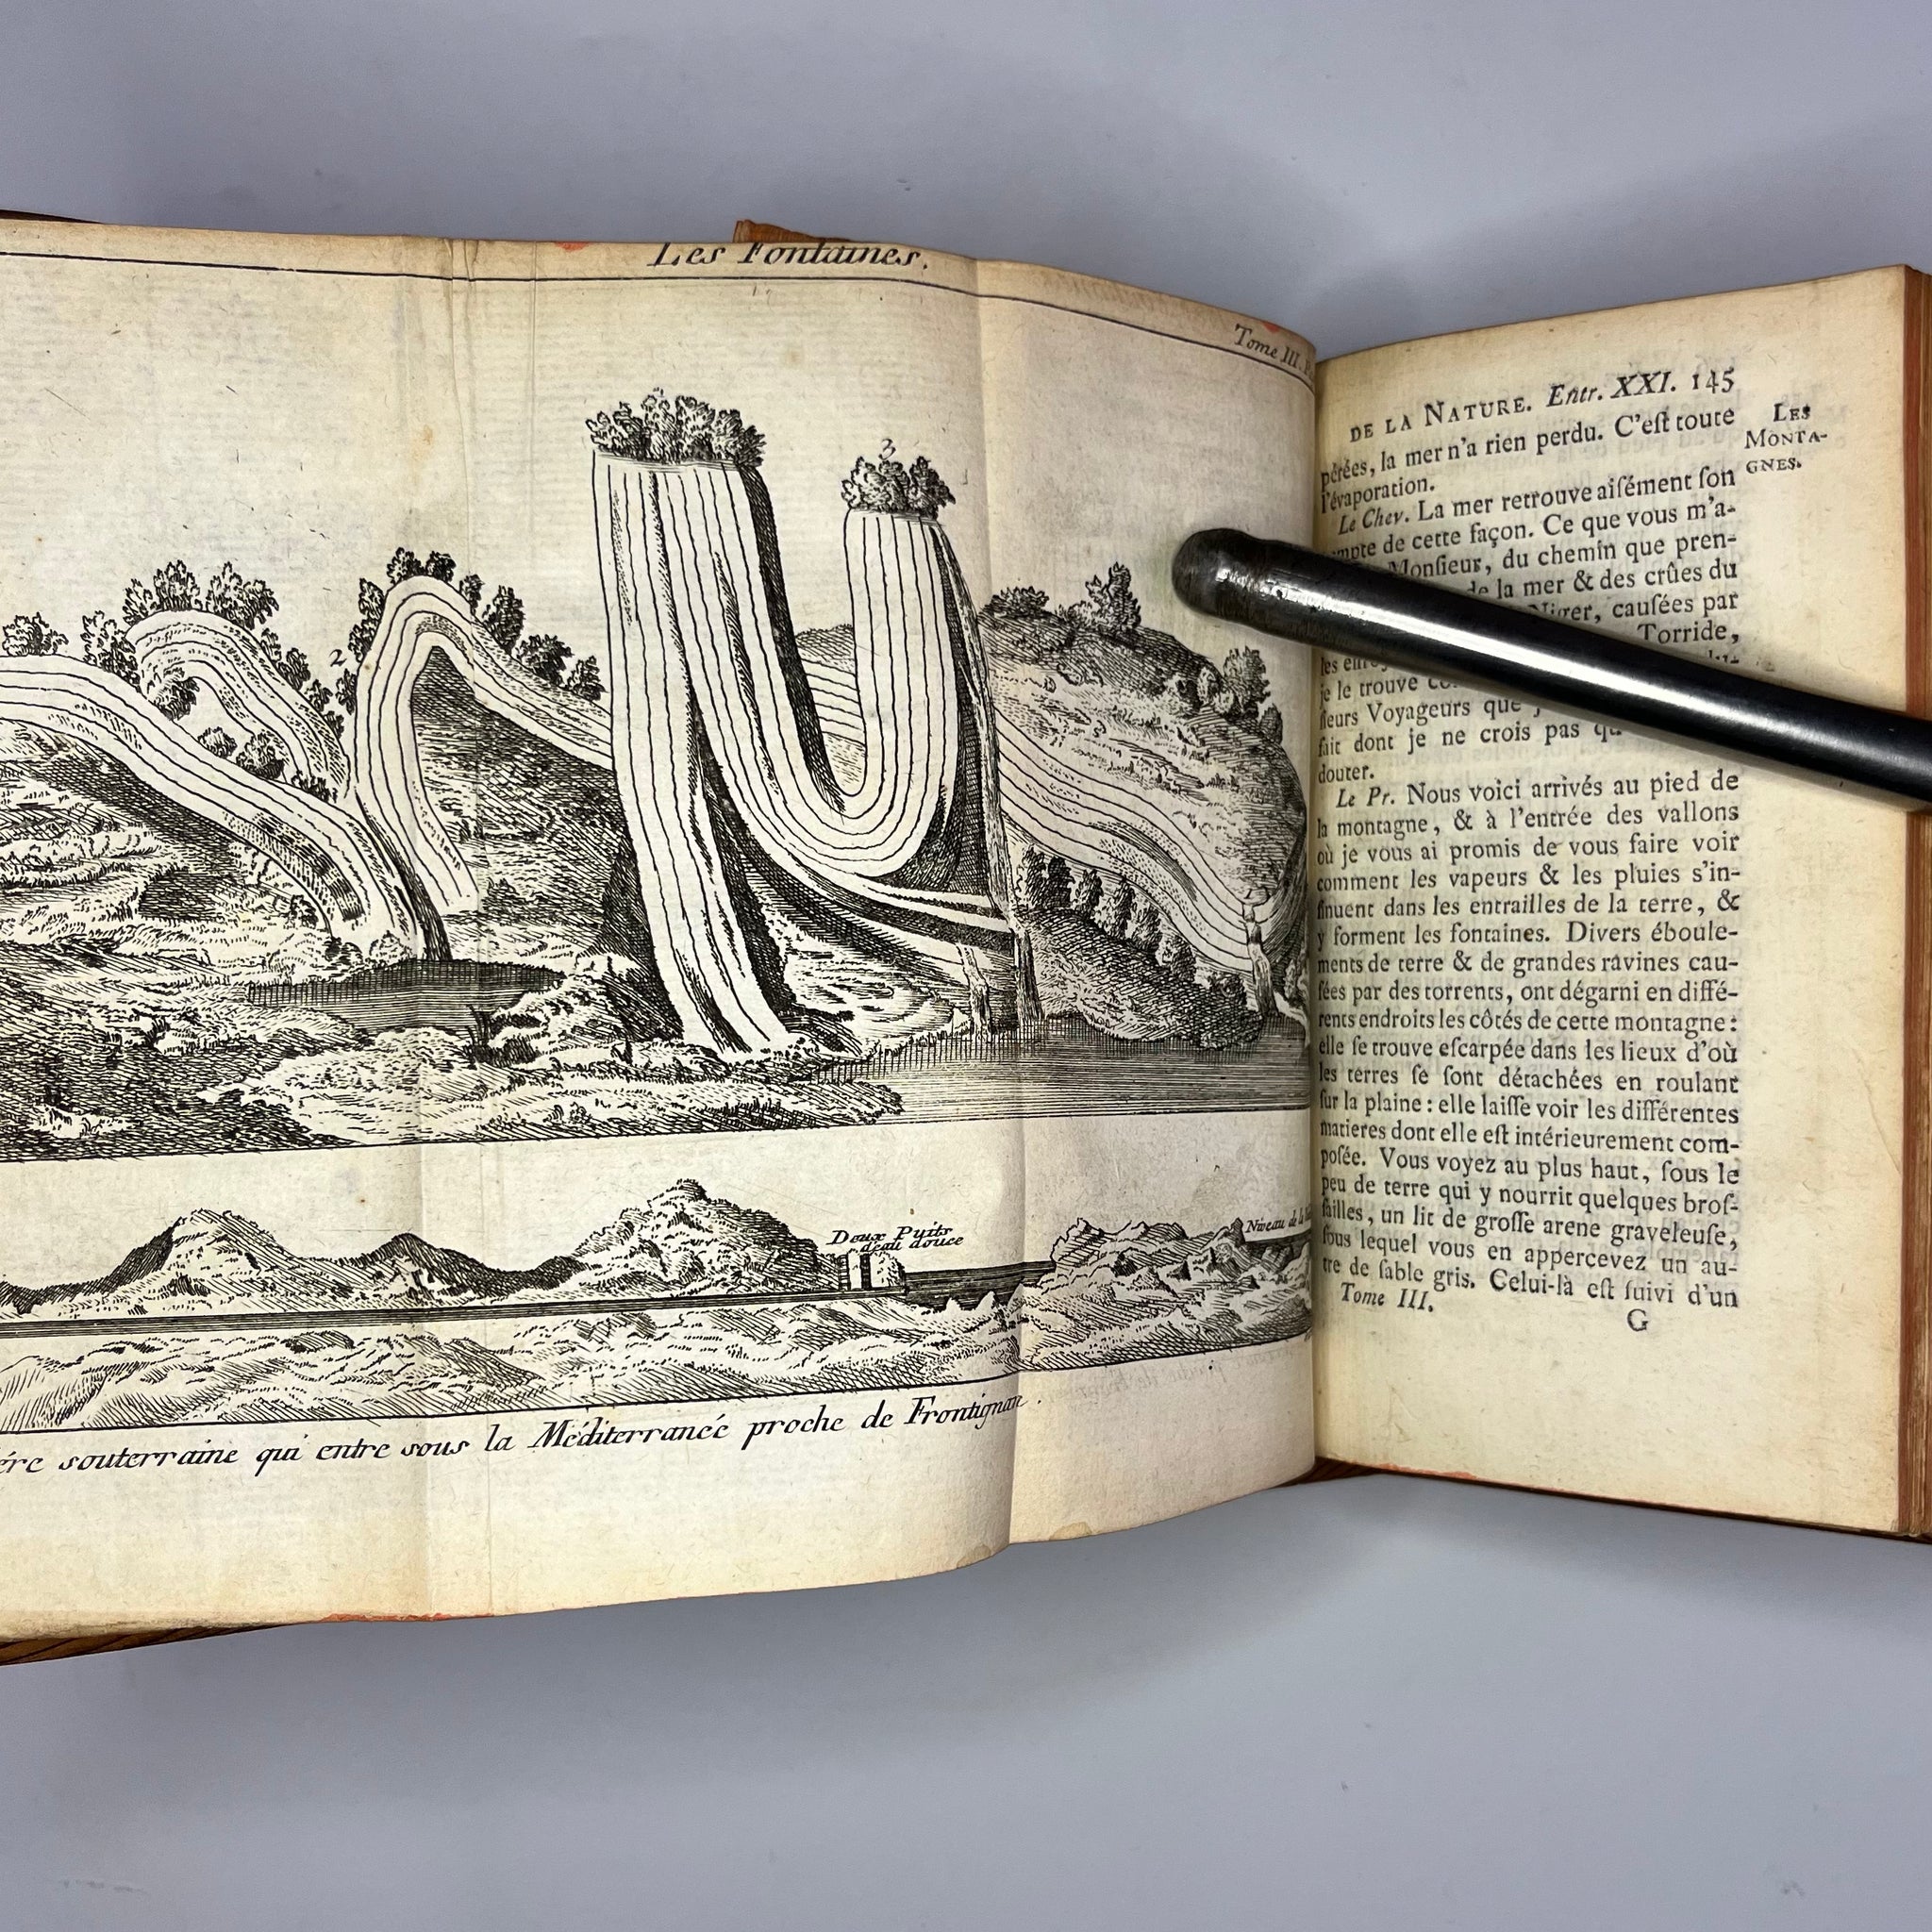 Les Fontaines.
Tome III.
2
3
Deux Puits
deau douce
Niveau de la
souterraine qui entre sous la Méditerranée proche de Frontignan.
DE LA NATURE. Entr. XXI. 145
LES
MONTA-
GNES.
pérées, la mer n'a rien perdu. C'eſt toute
l'évaporation.
Le Chev. La mer retrouve aiſément ſon
de cette façon. Ce que vous m'a-
Monſieur, du chemin que pren-
de la mer & des crûes du
Niger, cauſées par
Torride,
les
je le trouve
ſieurs Voyageurs que
fait dont je ne crois pas
douter.
Le Pr. Nous voici arrivés au pied de
la montagne, & à l'entrée des vallons
où je vous ai promis de vous faire voir
comment les vapeurs & les pluies s'in-
ſinuent dans les entrailles de la terre, &
y forment les fontaines. Divers éboule-
ments de terre & de grandes ravines cau-
ſées par des torrents, ont dégarni en diffé-
rents endroits les côtés de cette montagne:
elle ſe trouve eſcarpée dans les lieux d'où
les terres ſe ſont détachées en roulant
ſur la plaine: elle laiſſe voir les différentes
matieres dont elle eſt intérieurement com-
poſée. Vous voyez au plus haut, ſous le
peu de terre qui y nourrit quelques broſ-
ſailles, un lit de groſſe arene graveleuſe,
ſous lequel vous en appercevez un au-
tre de ſable gris. Celui-là eſt ſuivi d'un
Tome III.
G